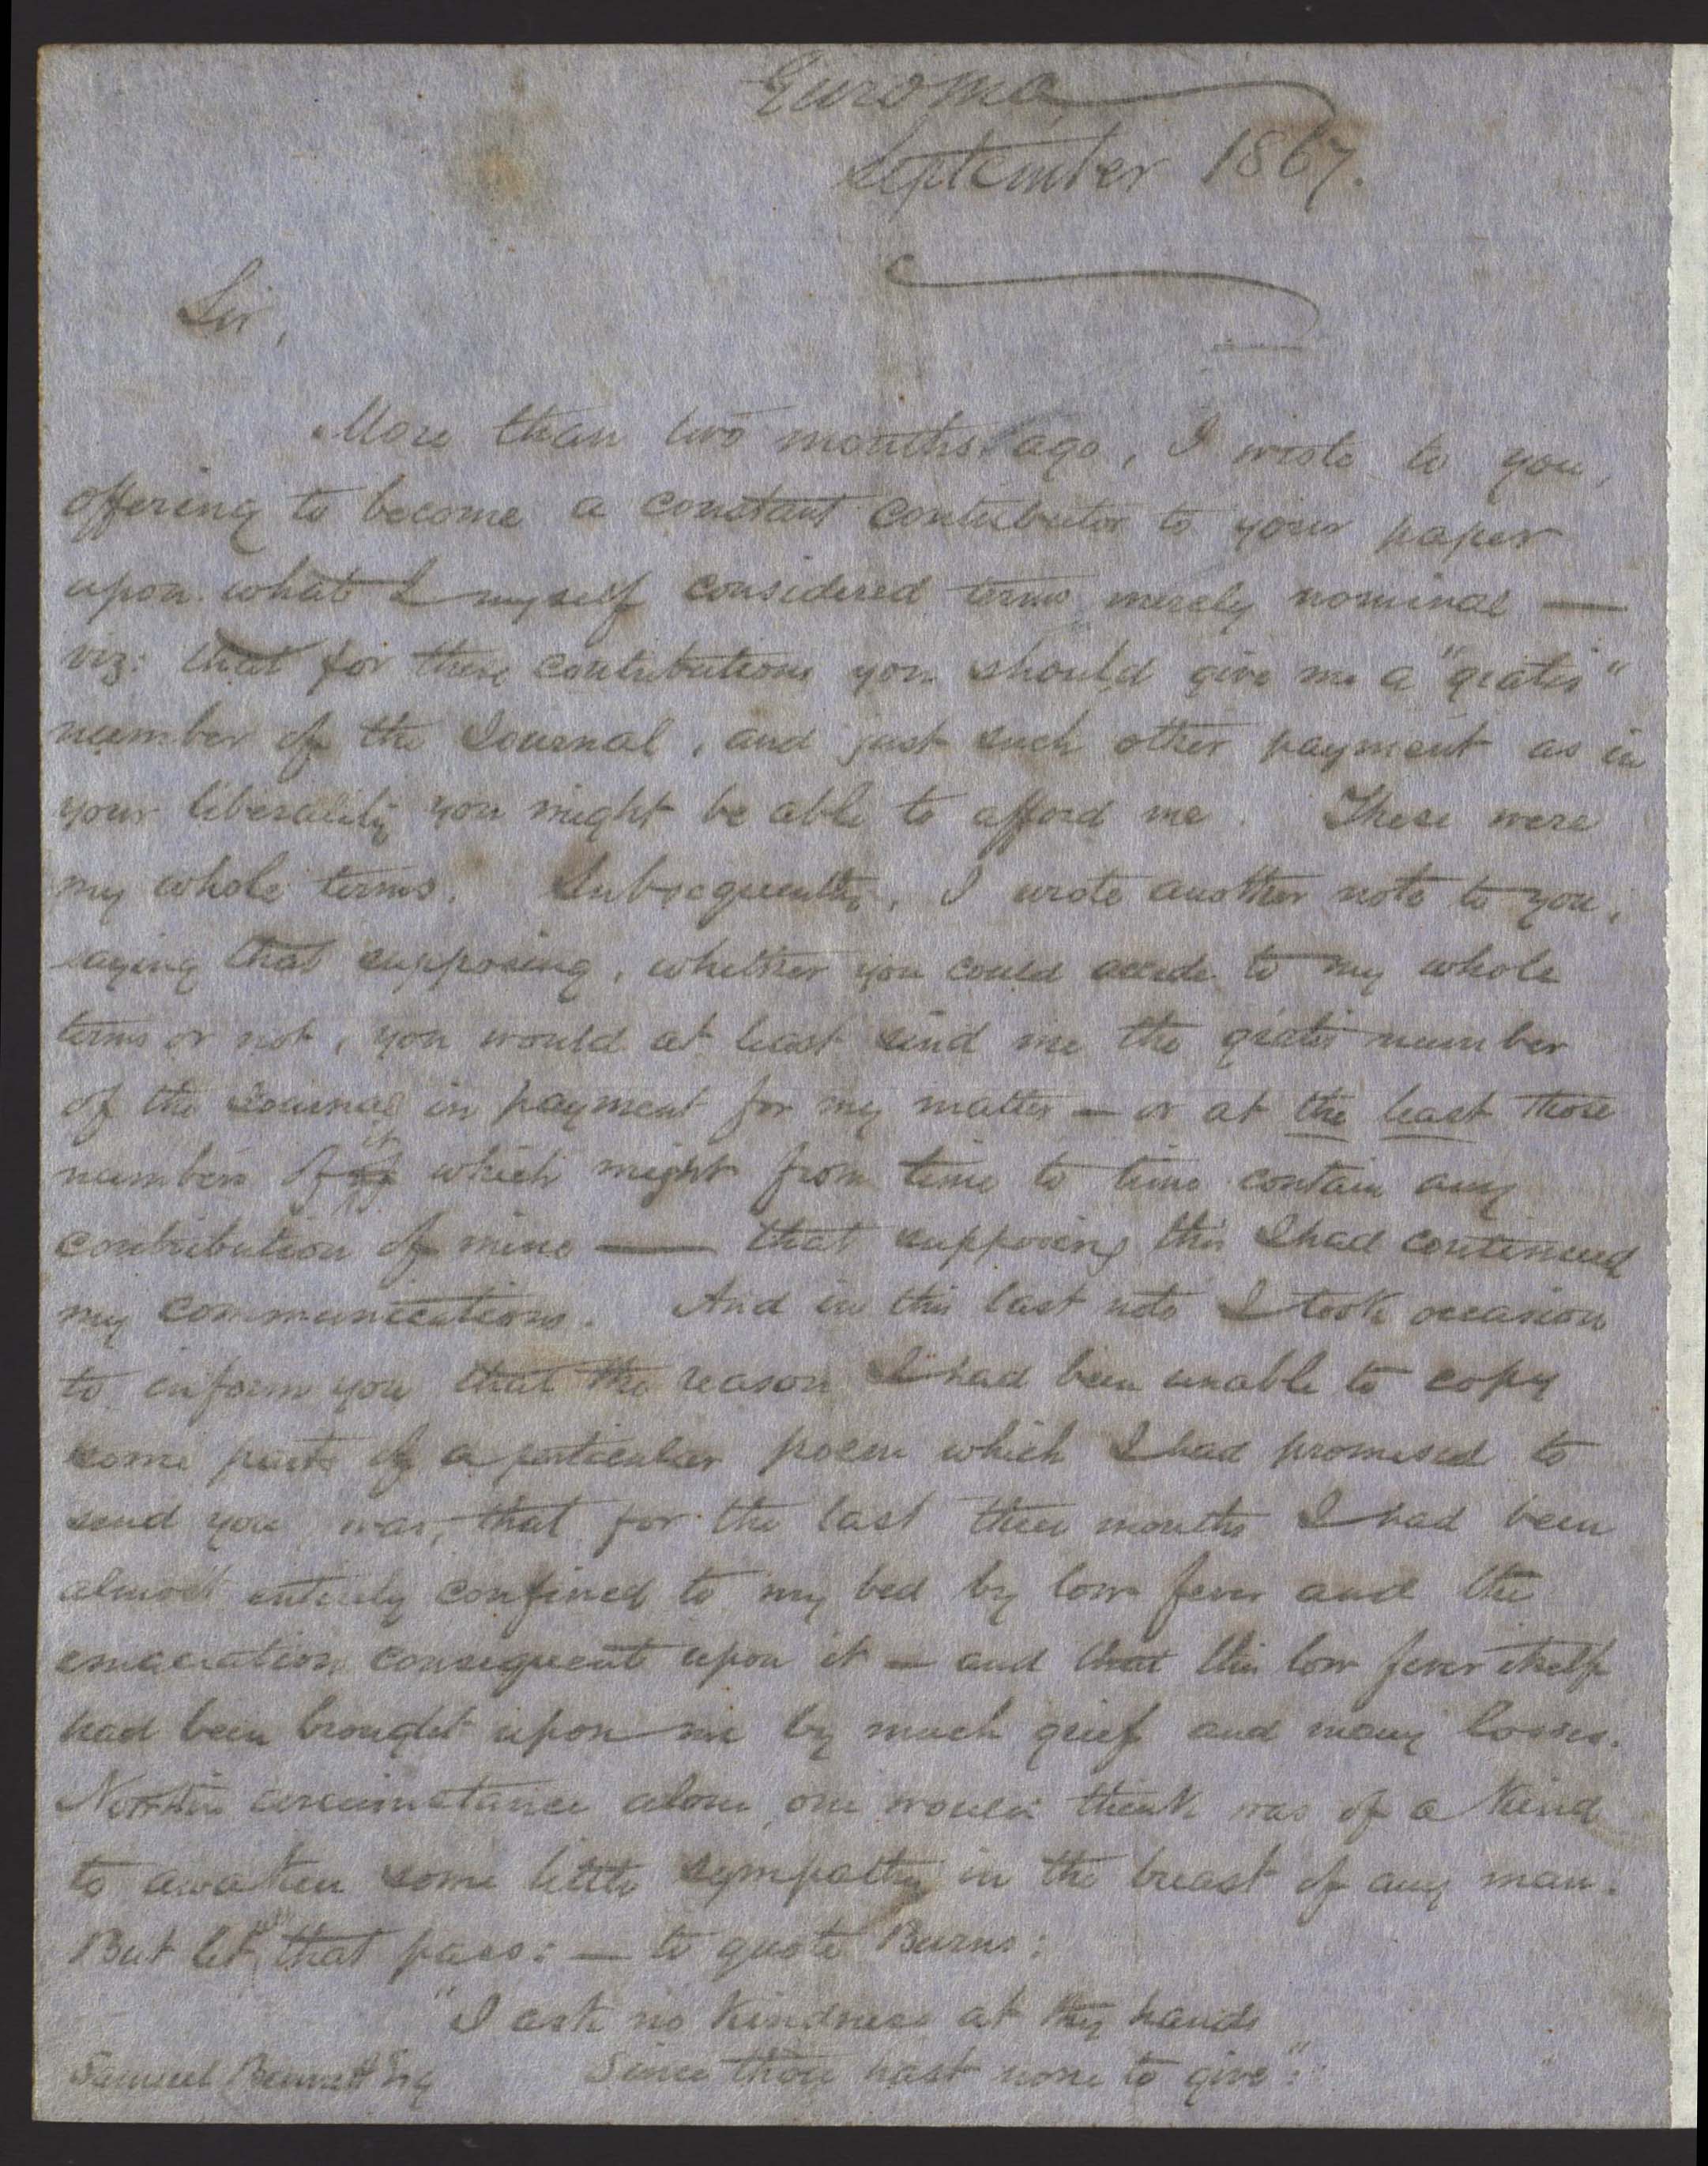 Euroma
September 1867.
Sir,
More than two months ago, I wrote to you,
offering to become a constant contributor to your paper
upon what I myself considered terms merely nominal —
viz: that for these contributions you should give me a "gratis"
number of the Journal, and just such other payment as in
your liberality you might be able to afford me. These were
my whole terms. Subsequently, I wrote another note to you,
saying that supposing, whether you could accede to my whole
terms or not, you would at least send me the gratis number
of the Journal in payment for my matter — or at the least those
numbers of it which might from time to time contain any
contribution of mine — that supposing this I had continued
my communications. And in this last note I took occasion
to inform you that the reason I had been unable to copy
some parts of a particular poem which I had promised to
send you was, that for the last three months I had been
almost entirely confined to my bed by low fever and the
emaciation consequent upon it — and that this low fever itself
had been brought upon me by much grief and many losses.
Now this circumstance alone one would think was of a kind
to awaken some little sympathy in the breast of any man.
But let that pass: — to quote Burns:
"I ask no kindness at thy hands
Since thou hast none to give":
Samuel Bennett Esq